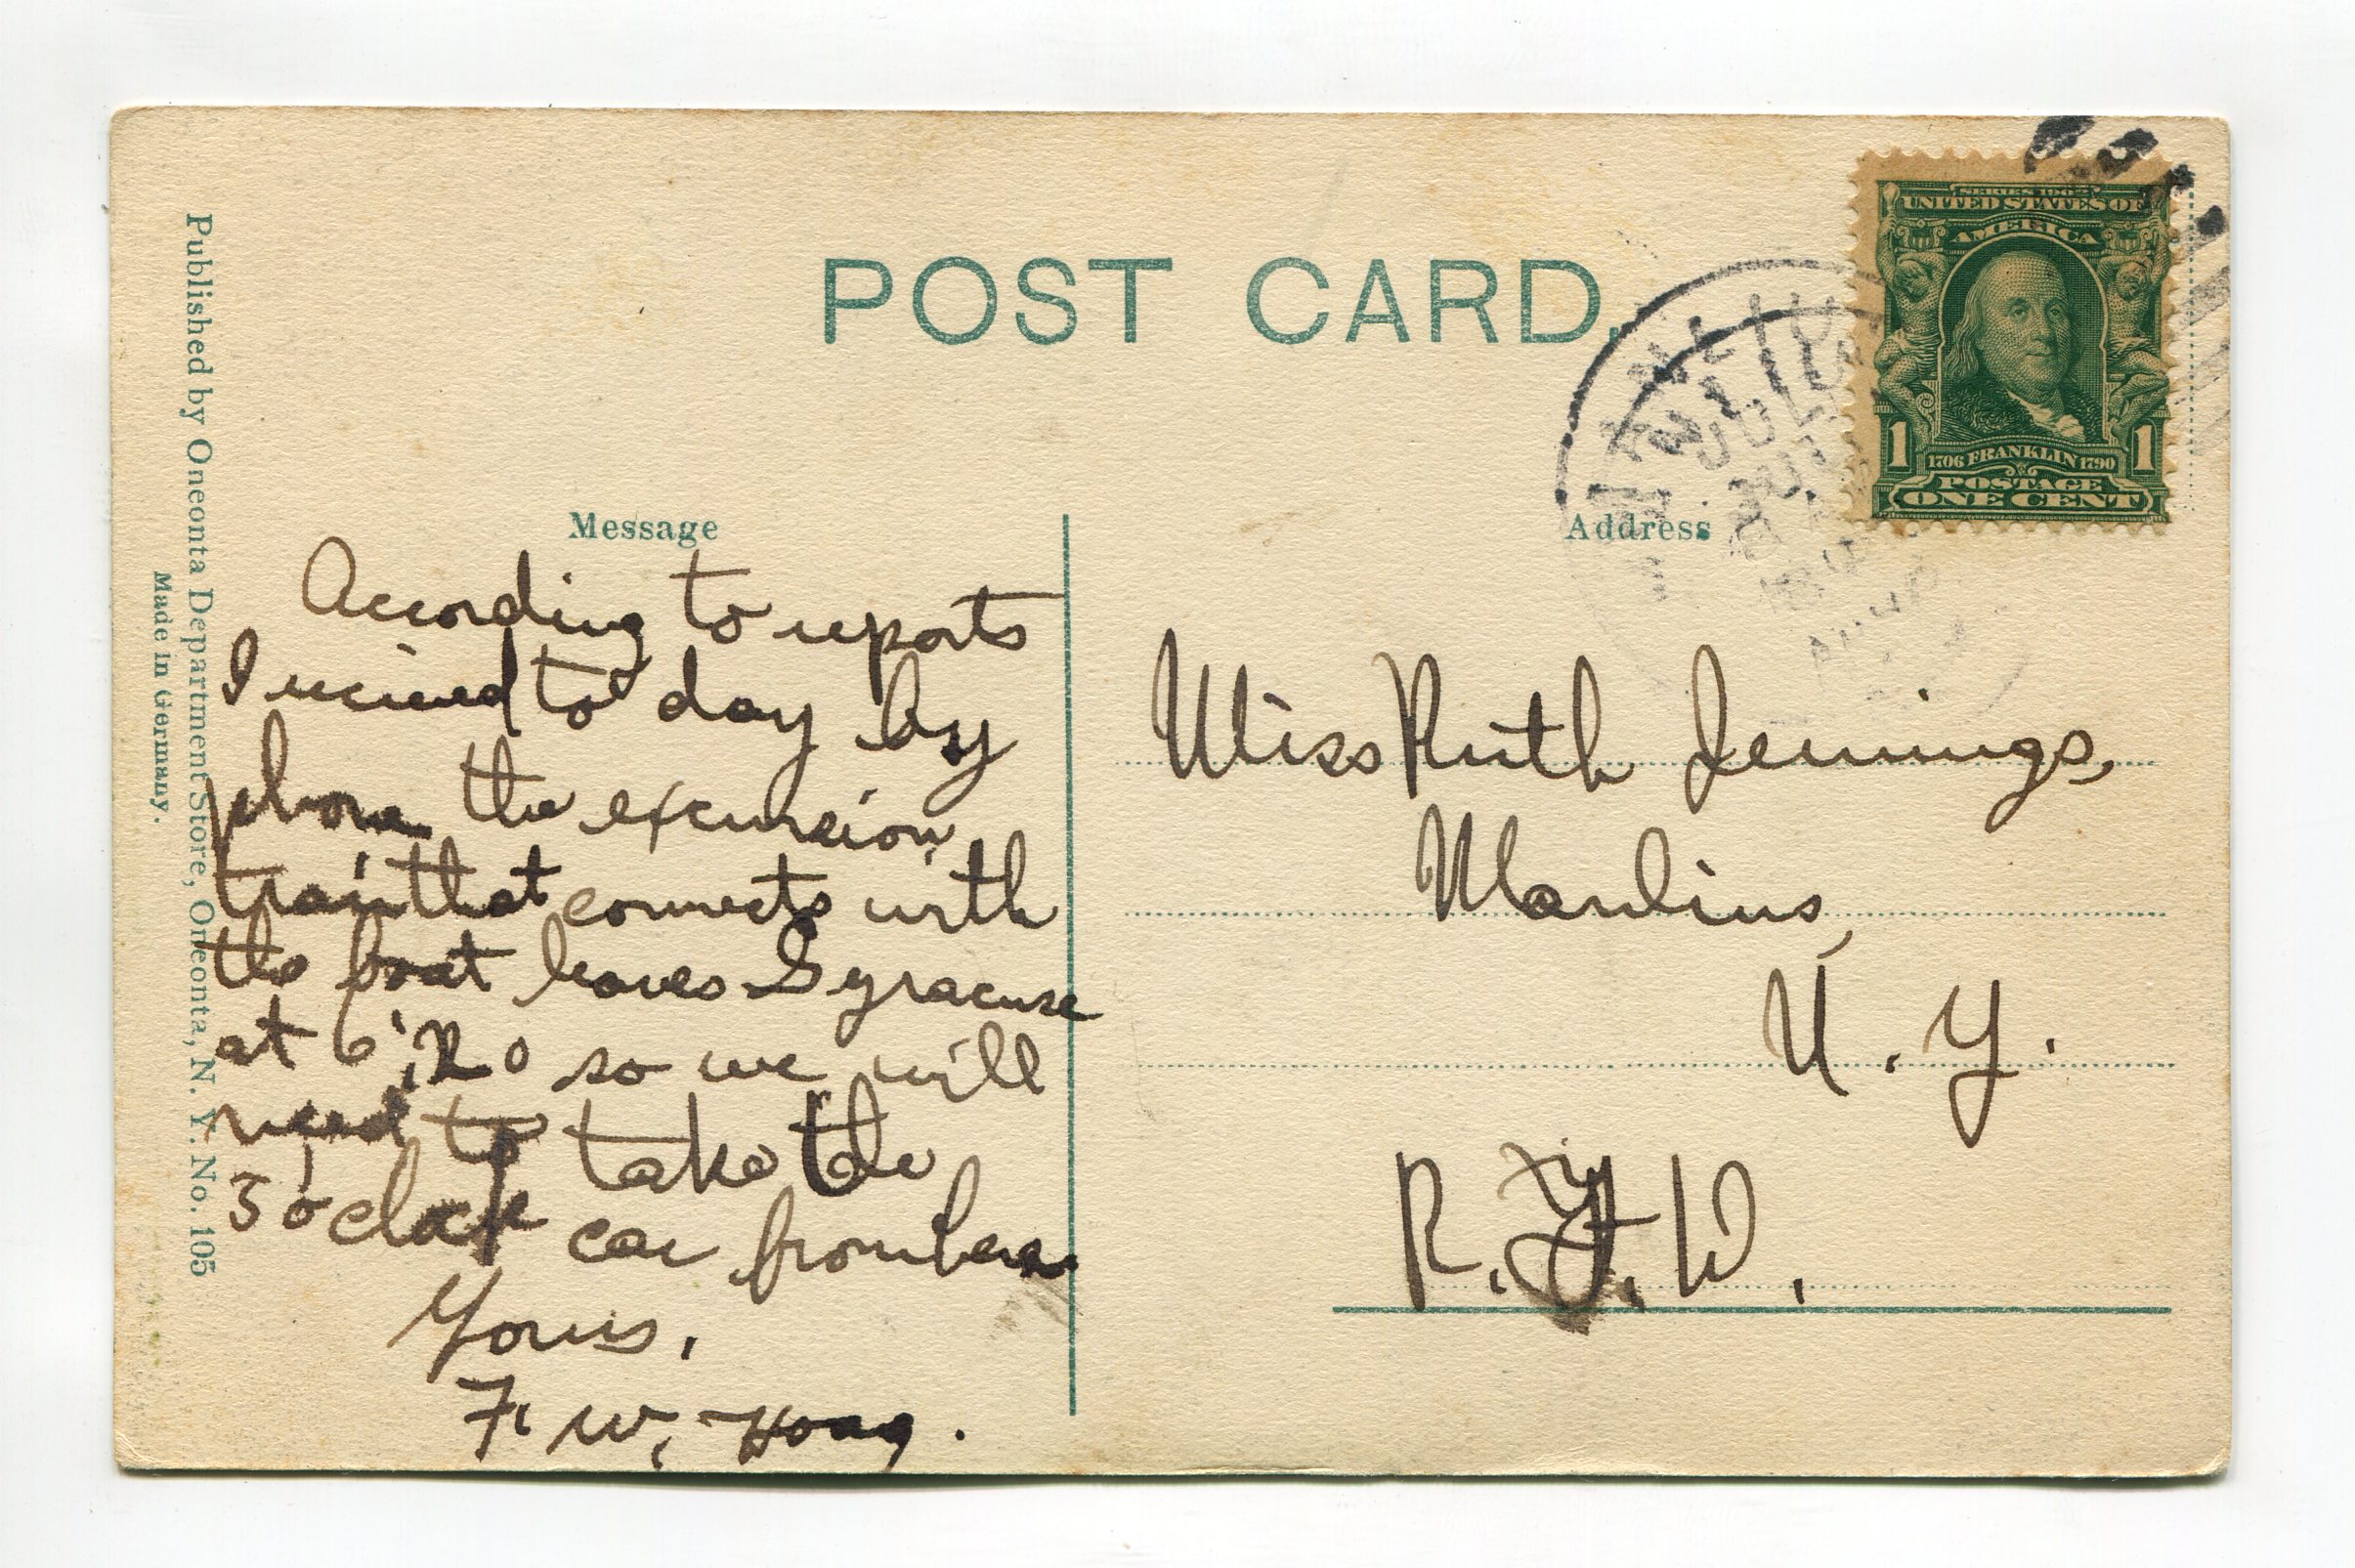 POST CARD.
SERIES 1902
UNITED STATES OF
AMERICA
1706 FRANKLIN 1790
1 1
POSTAGE
ONE CENT
JUL
Message
According to reports
I recieved to day by
phone the excursion
train that connects with
the boat leaves Syracuse
at 6:20 so we will
need to take the
5 o'clock car from here
Yours,
F. W.
Address
Miss Ruth Jennings,
Manlius,
N. Y.
R. F. D.
Published by Oneonta Department Store, Oneonta, N. Y. No. 105
Made in Germany.